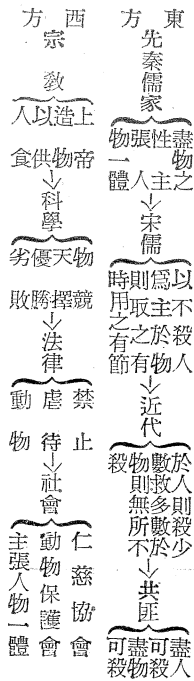 東方
先秦儒家
盡物之
性主
張人
物一體
→
宋儒
以不殺人
爲主於物
則取之有
時用之有節
→
近代
於人則殺少
數救多數於
物則無所不
殺
→
共匪
盡人可殺
盡物可殺
西方
宗教
上帝
造物
以供
人食
→
科學
物競
天擇
優勝
劣敗
→
法律
禁止
虐待
動物
→
社會
仁慈協會
動物保護會
主張人物一體